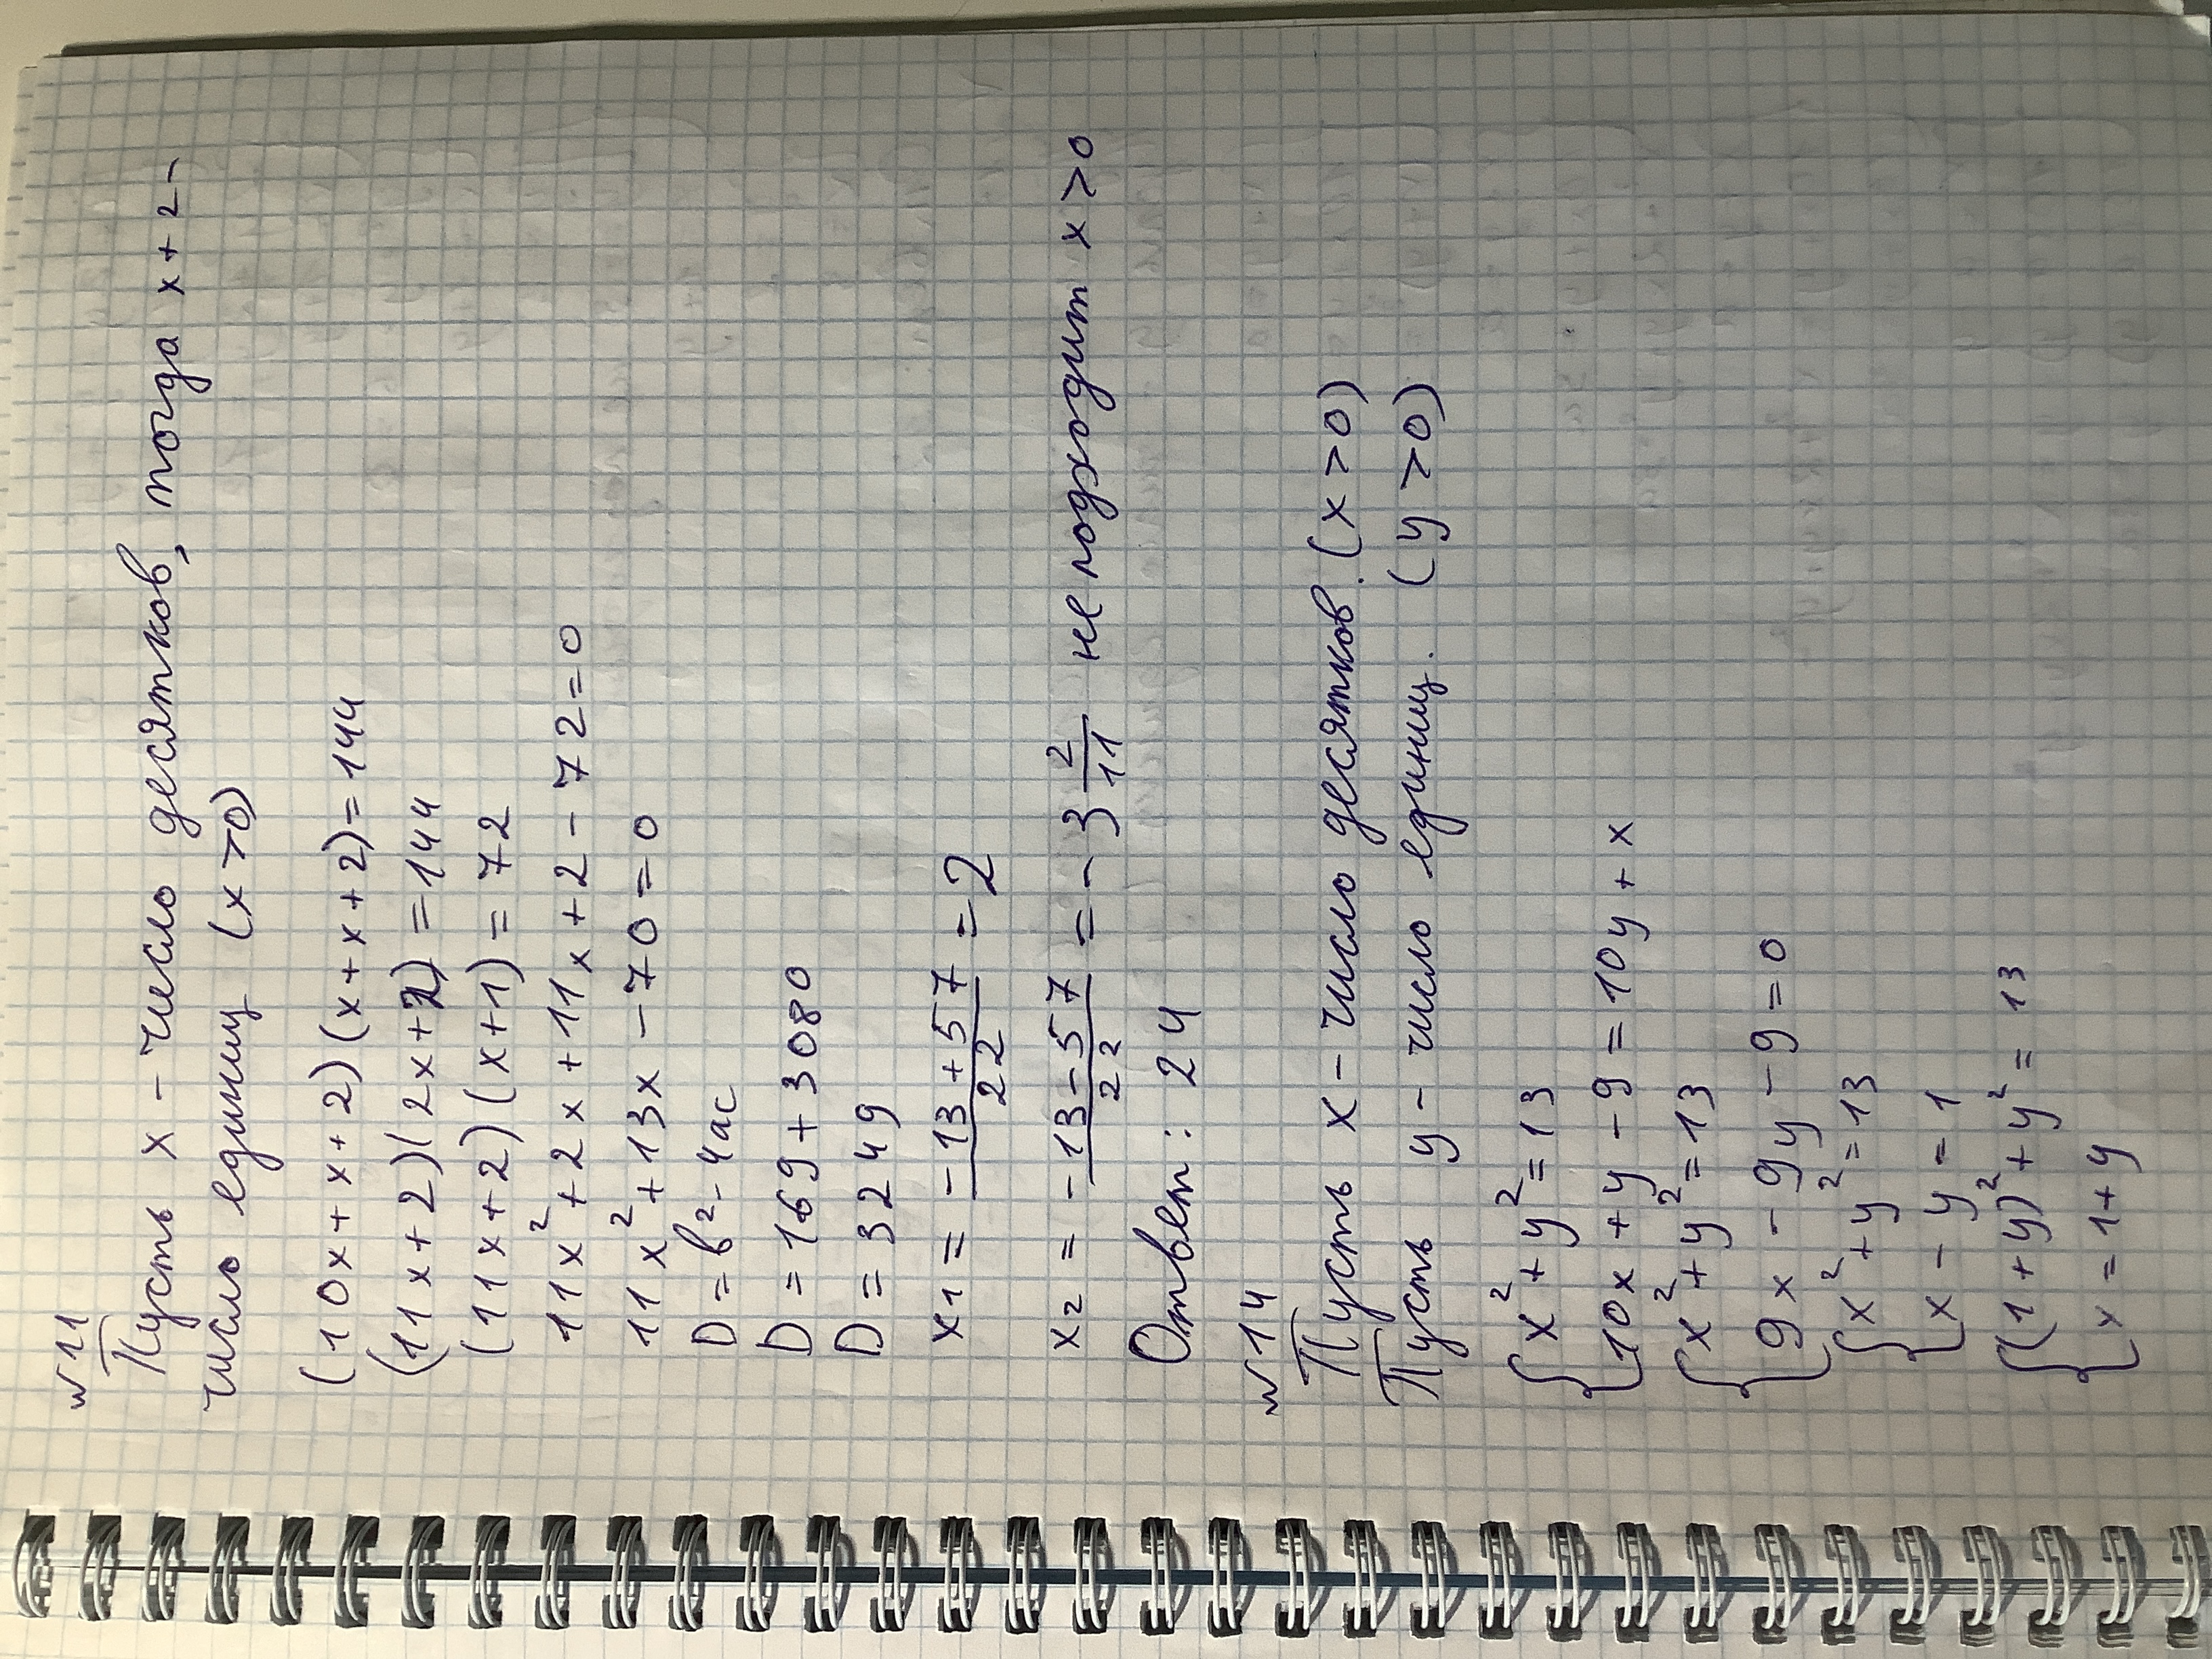 №11
Пусть x - число десятков, тогда x + 2 -
число единиц (x > 0)
(10x + x + 2)(x + x + 2) = 144
(11x + 2)(2x + 2) = 144
(11x + 2)(x + 1) = 72
11x² + 2x + 11x + 2 - 72 = 0
11x² + 13x - 70 = 0
D = b² - 4ac
D = 169 + 3080
D = 3249
x₁ = (-13 + 57)/22 = 2
x₂ = (-13 - 57)/22 = -3 2/11 не подходит x > 0
Ответ: 24
№14
Пусть x - число десятков. (x > 0)
Пусть y - число единиц. (y > 0)
{ x² + y² = 13
10x + y - 9 = 10y + x
{ x² + y² = 13
9x - 9y - 9 = 0
{ x² + y² = 13
x - y = 1
{ (1 + y)² + y² = 13
x = 1 + y